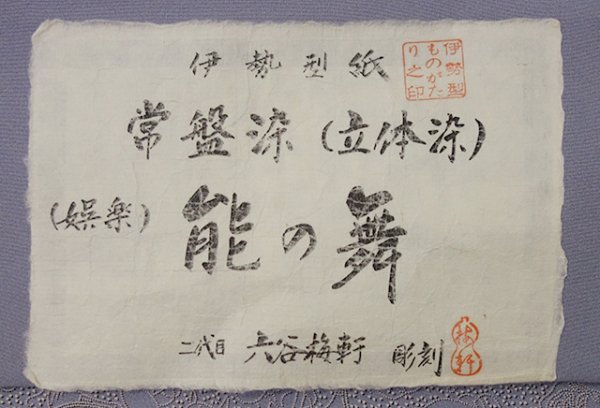 伊勢型紙
伊勢型
ものがた
り之印
常盤染(立体染)
(娯楽) 能の舞
二代目 六谷梅軒 彫刻
梅軒